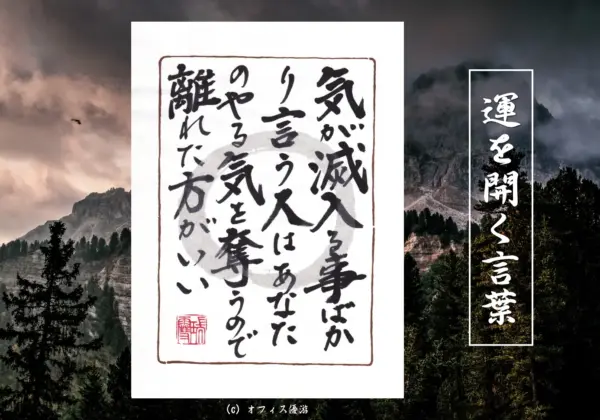 運を開く言葉
気が滅入る事ばか
り言う人はあなた
のやる気を奪うので
離れた方がいい
(C) オフィス優游